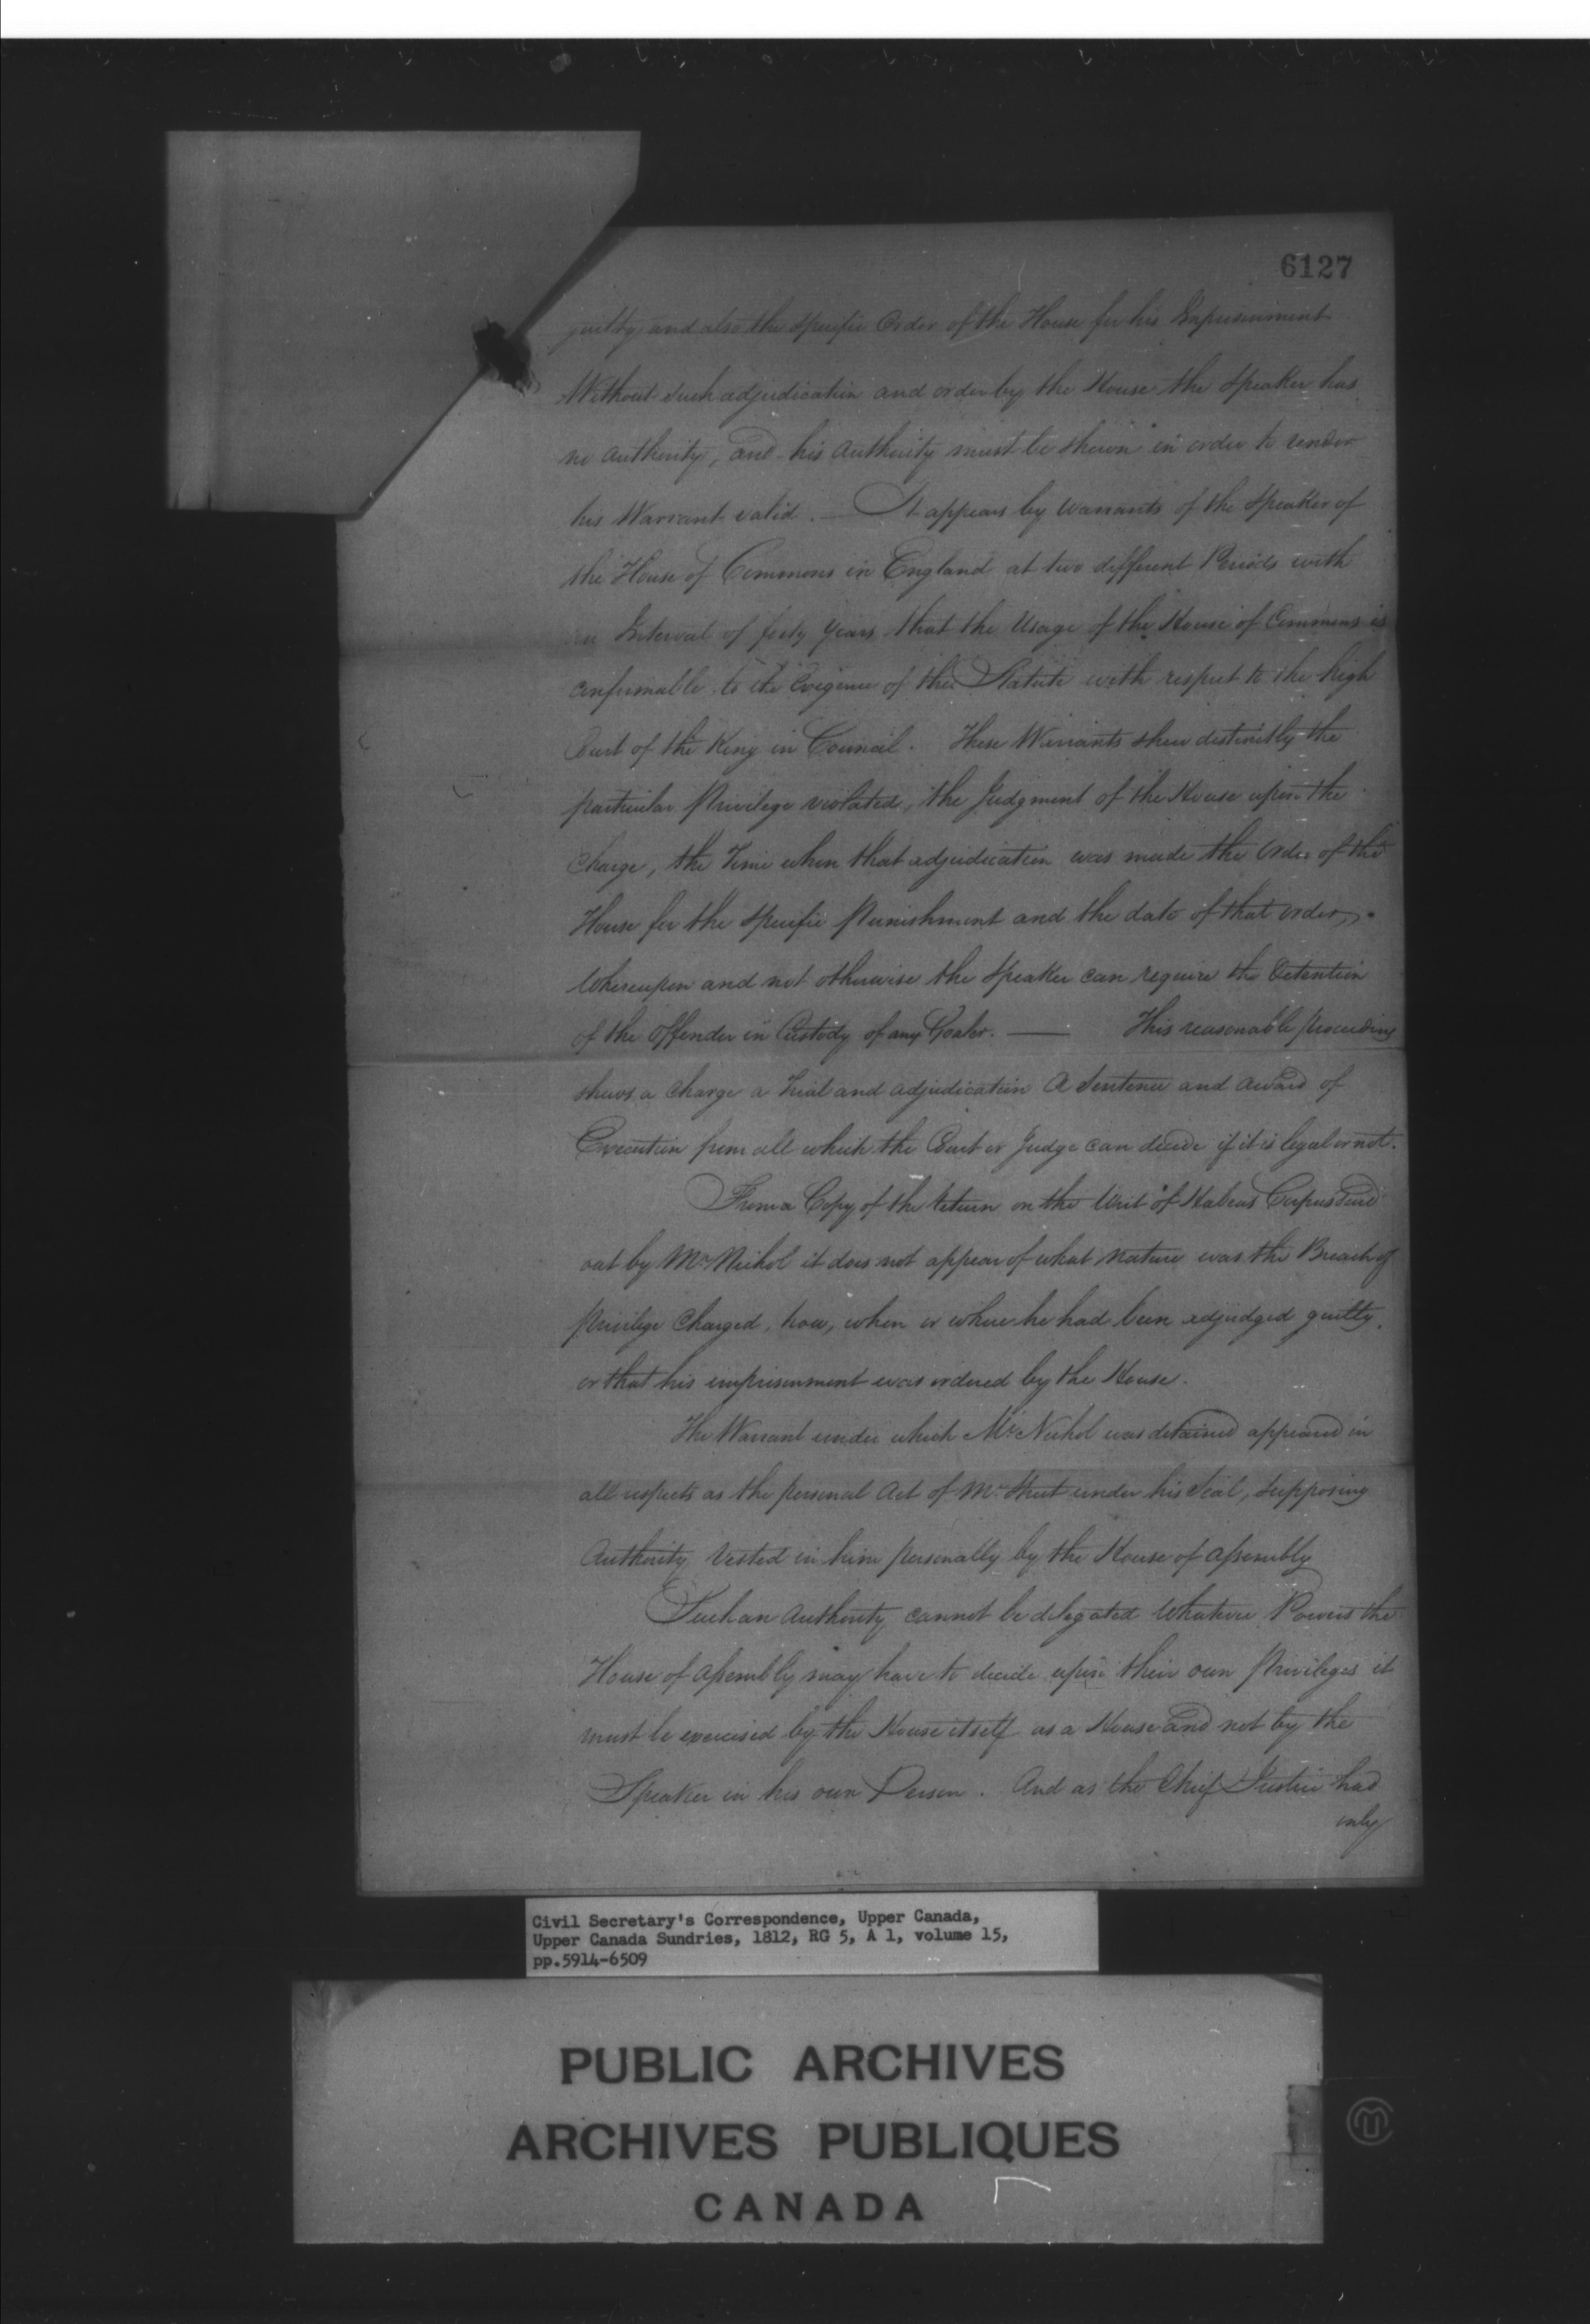 6127
guilty, and also the specific Order of the House for his Imprisonment
Without such adjudication and order by the House the Speaker has
no authority, and his authority must be shewn in order to render
his Warrant valid. — It appears by Warrants of the Speaker of
the House of Commons in England at two different Periods with
an Interval of forty Years that the Usage of the House of Commons is
conformable to the Exigence of the Statute with respect to the high
Court of the King in Council. These Warrants shew distinctly the
particular Privilege violated, the Judgment of the House upon the
Charge, the Time when that adjudication was made the Order of the
House for the specific Punishment and the date of that order,
Whereupon and not otherwise the Speaker can require the Detention
of the Offender in Custody of any Goaler. — This reasonable proceeding
shews a Charge a Trial and adjudication a Sentence and award of
Execution from all which the Court or Judge can decide if it is legal or not.
From a Copy of the Return on the Writ of Habeas Corpus sued
out by Mr Nichol it does not appear of what Nature was the Breach of
privilege Charged, how, when or where he had been adjudged guilty,
or that his imprisonment was ordered by the House.
The Warrant under which Mr Nichol was detained appeared in
all respects as the personal Act of Mr Street under his Seal, supposing
Authority Vested in him personally by the House of Assembly
Such an Authority cannot be delegated Whatever Powers the
House of Assembly may have to decide upon their own Privileges it
must be exercised by the House itself as a House and not by the
Speaker in his own Person. And as the Chief Justice had
only
Civil Secretary's Correspondence, Upper Canada,
Upper Canada Sundries, 1812, RG 5, A 1, volume 15,
pp.5914-6509
PUBLIC ARCHIVES
ARCHIVES PUBLIQUES
CANADA